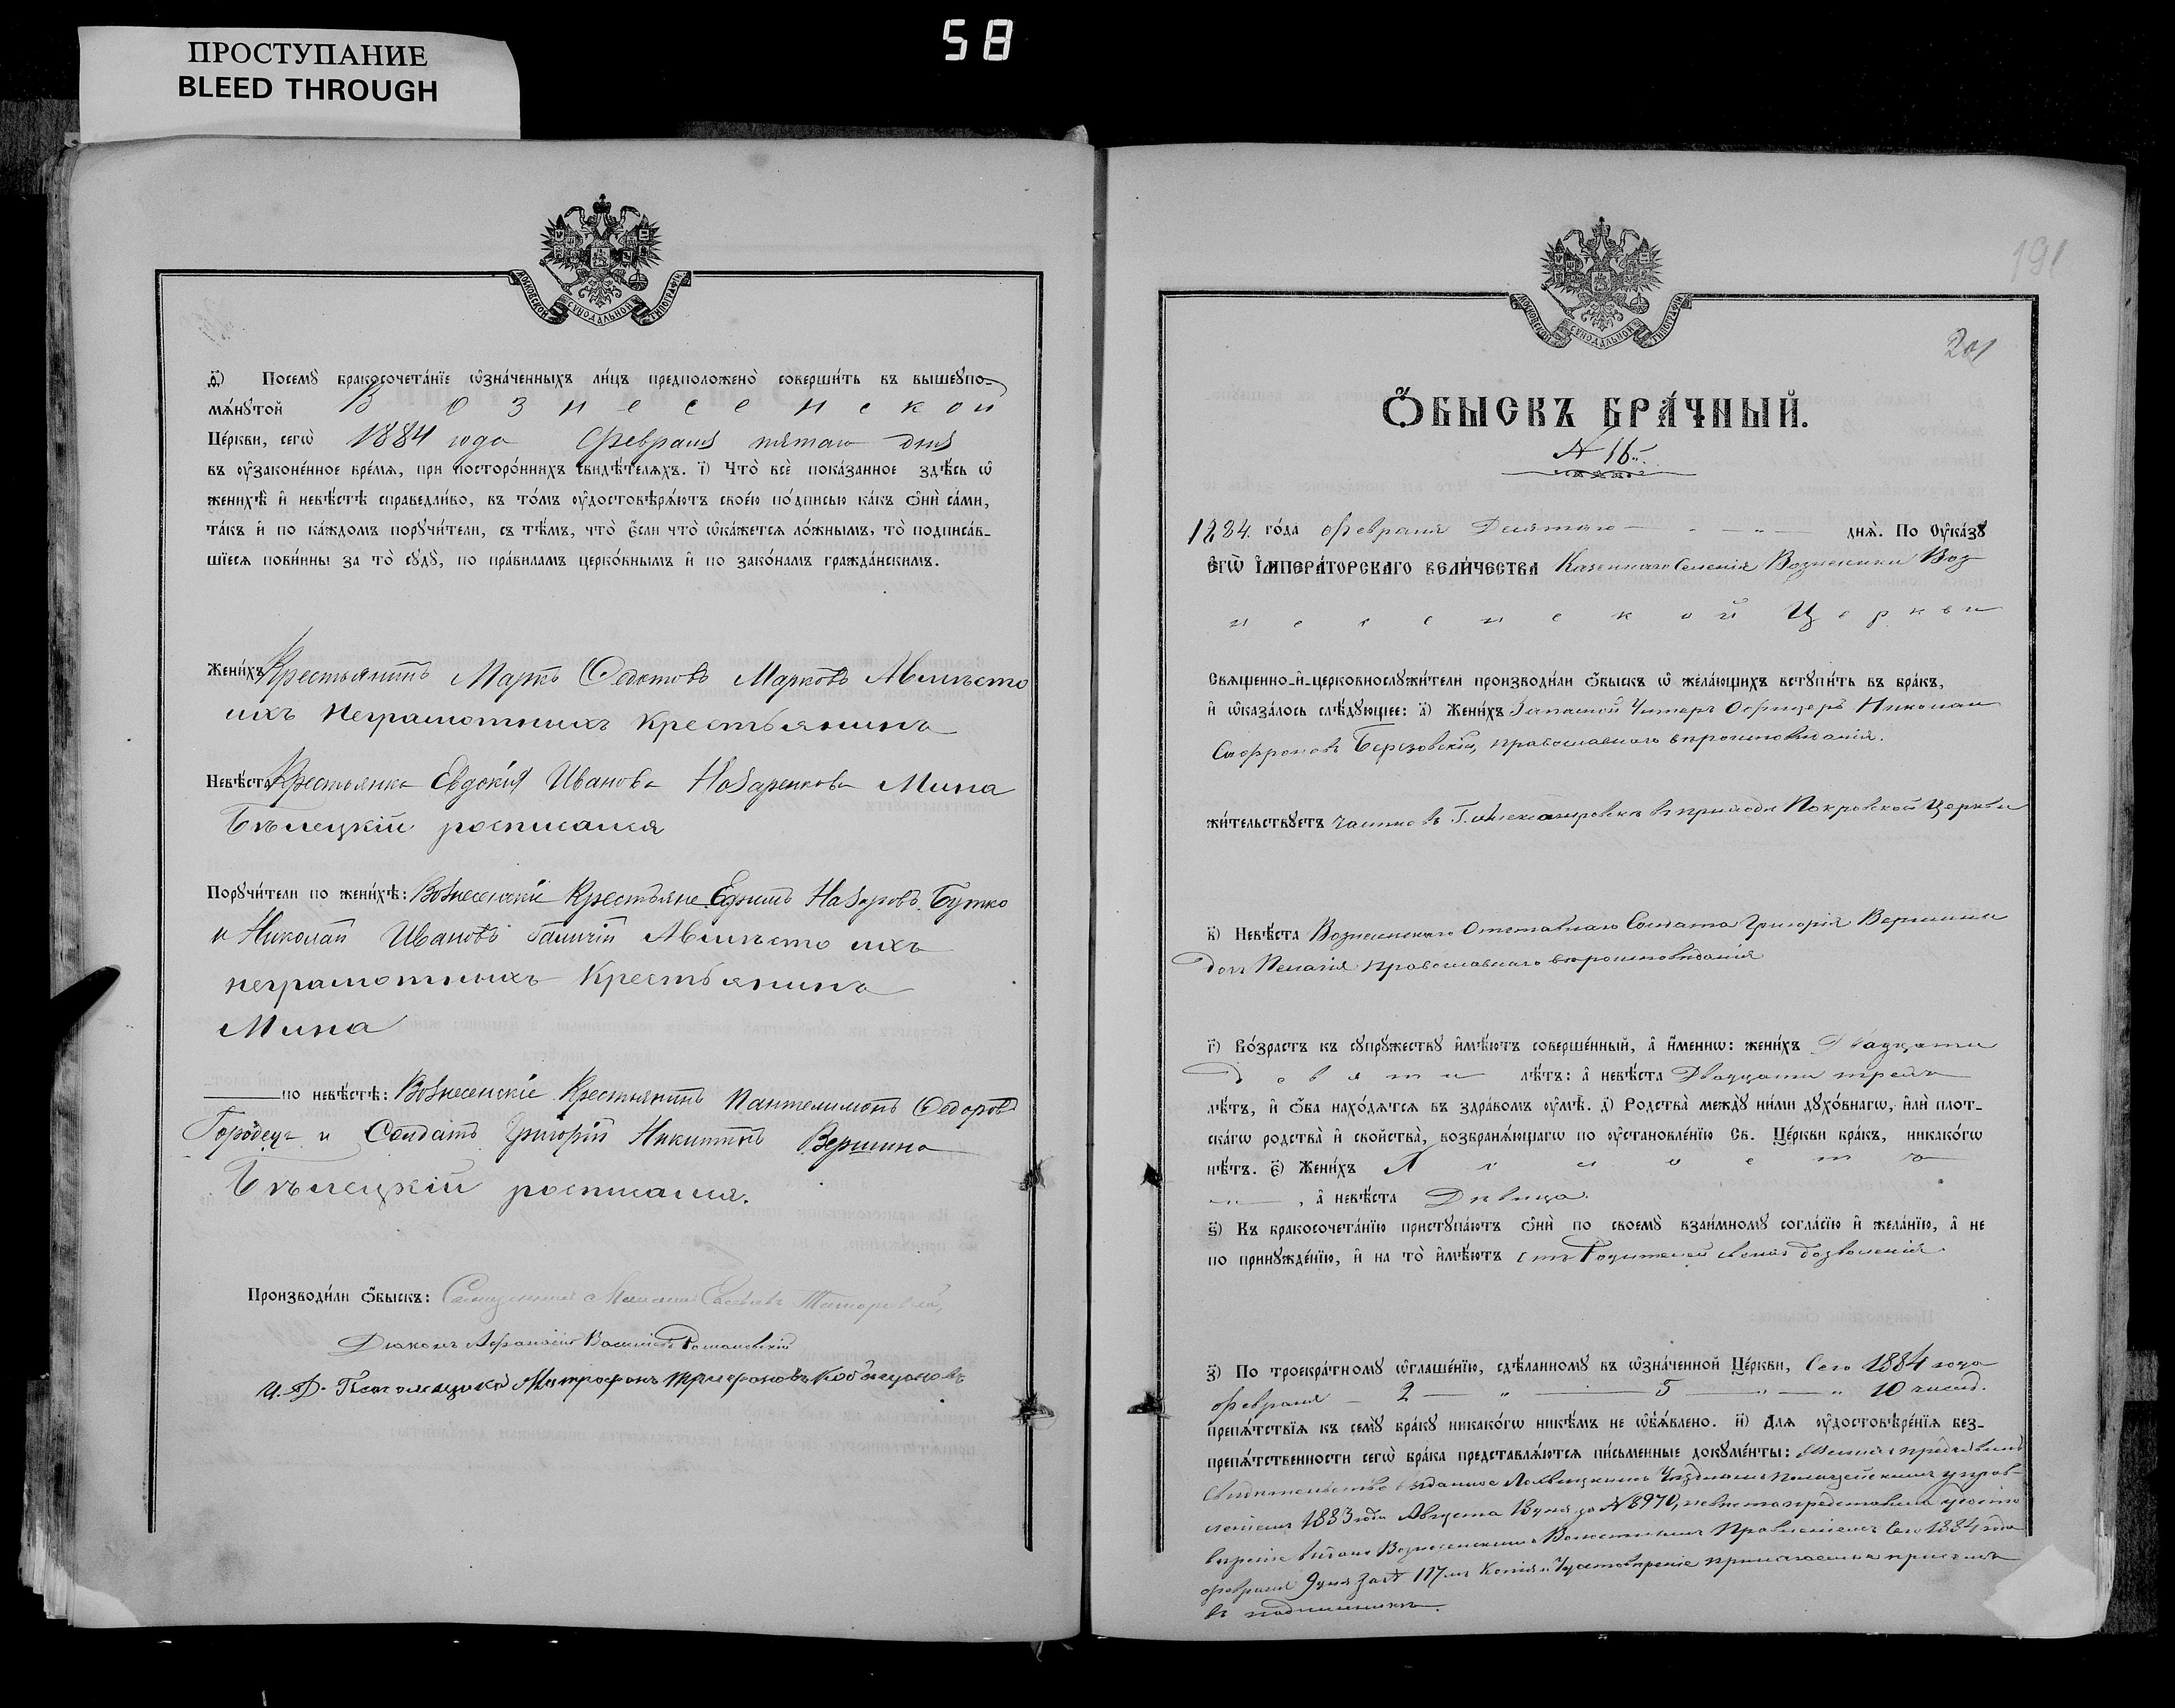 58
ПРОСТУПАНИЕ
BLEED THROUGH
МОСКОВСКОЙ СѴНОДАЛЬНОЙ ТИПОГРАФІИ
ѳ҃) Посемꙋ̀ бракосочета́нїе ѡ҆зна́ченныхъ ли́цъ предположено̀ соверши́ть въ вышеꙋпо-
мѧ́нꙋтой Вознесенской
Це́ркви, сегѡ̀ 1884 года Февраля пятаго дня
въ оу҆законе́нное вре́мѧ, при посторо́ннихъ свидѣ́телѧхъ. і҃) Что̀ всѐ пока́занное здѣ́сь ѡ҆
женихѣ̀ и҆ невѣ́стѣ справедли́во, въ то́мъ оу҆достовѣрѧ́ютъ свое́ю по́дписью ка́къ ѻ҆нѝ са́ми,
та́къ и҆ по ка́ждомъ порꙋчи́тели, съ тѣ́мъ, что̀ є҆́сли что̀ ѡ҆ка́жетсѧ ло́жнымъ, то̀ подписа́в-
шїесѧ пови́нны за то̀ сꙋдꙋ̀, по пра́виламъ церко́внымъ и҆ по зако́намъ гражда́нскимъ.
Жени́хъ Крестьянинъ Маркъ Федотовъ Марковъ Авмѣсто
ихъ неграмотныхъ крестьянинъ
Невѣ́ста Крестьянка Евдокія Иванова Назаренкова Мина
Бѣлецкій росписался
Порꙋчи́тели по женихѣ̀: Вознесенскіе Крестьяне Ефимъ Назаровъ Бутко
и Николай Ивановъ Галичій Авмѣсто ихъ
неграмотныхъ Крестьянинъ
Мина
по невѣ́стѣ: Вознесенскіе Крестьянинъ Пантелимонъ Федоровъ
Городецъ и Солдатъ Григорій Никитинъ Вершина
Бѣлецкій росписался.
Производи́ли ѻ҆́быскъ: Священникъ
Діаконъ Афанасій Василіевъ Романовскій
И. Д. Псаломщика Митрофанъ Трифоновъ
191
201
МОСКОВСКОЙ СѴНОДАЛЬНОЙ ТИПОГРАФІИ
Ѻ҆́БЫСКЪ БРА́ЧНЫЙ.
№ 16й.
1884. го́да Февраля Десятаго днѧ̀. По Оу҆ка́зꙋ
Є҆гѡ̀ І҆мпера́торскаго вели́чества Казеннаго Селенія Вознесенки Воз-
несенской Церкви
Свѧще́нно-и҆-церковнослꙋжи́тели производи́ли ѻ҆́быскъ ѡ҆ жела́ющихъ встꙋпи́ть въ бра́къ,
и҆ ѡ҆каза́лось слѣ́дꙋющее: а҃) Жени́хъ Запасной Унтеръ Офицеръ Николай
Софроновъ Березовскій, православнаго вѣроисповѣданія.
жи́тельствꙋетъ Г. Александровскѣ въ приходѣ Покровской Церкви
в҃) Невѣ́ста Вознесенскаго Отставнаго Солдата Григорія Вершины
дочь Пелагія православнаго вѣроисповѣданія
г҃) Во́зрастъ къ сꙋпрꙋ́жествꙋ и҆мѣ́ютъ соверше́нный, а҆ и҆́меннѡ: жени́хъ Двадцати
девяти лѣ́тъ: а҆ невѣ́ста Двадцати трехъ
лѣ́тъ, и҆ ѻ҆́ба нахо́дѧтсѧ въ здра́вомъ оу҆мѣ̀. д҃) Родства̀ междꙋ̀ ни́ми дꙋхо́внагѡ, и҆лѝ плот-
ска́гѡ родства̀ и҆ свойства̀, возбранѧ́ющагѡ по оу҆становле́нїю Св. Це́ркви бра́къ, никако́гѡ
нѣ́тъ. є҃) Жени́хъ Холостъ
, а҆ невѣ́ста Дѣвица.
ѕ҃) Къ бракосочета́нїю пристꙋпа́ютъ ѻ҆нѝ по своемꙋ̀ взаи́мномꙋ согла́сїю и҆ жела́нїю, а҆ не
по принꙋжде́нїю, и҆ на то̀ и҆мѣ́ютъ отъ Родителей своихъ дозволенія
з҃) По троекра́тномꙋ ѡ҆глаше́нїю, сдѣ́ланномꙋ въ ѡ҆зна́ченной Це́ркви, Сего 1884 года
Февраля 2 5 10 чиселъ.
препѧ́тствїѧ къ семꙋ̀ бра́кꙋ никако́гѡ никѣ́мъ не ѡ҆б̾ѧ́влено. и҃) Для оу҆достовѣре́нїѧ без-
препѧ́тственности сегѡ̀ бра́ка представлѧ́ютсѧ пи́сьменные докꙋме́нты: Женихъ предъявилъ
Свидѣтельство выданное Лохвицкимъ Уѣзднымъ Полицейскимъ управ-
леніемъ 1883 года Августа 18 дня за № 8970, невѣста представила удосто-
вѣреніе выдано Вознесенскимъ Волостнымъ Правленіемъ Сего 1884 года
Февраля 9 дня за № 117м Копія и Удостовѣреніе прилагаемыя при семъ
въ подлинникѣ.